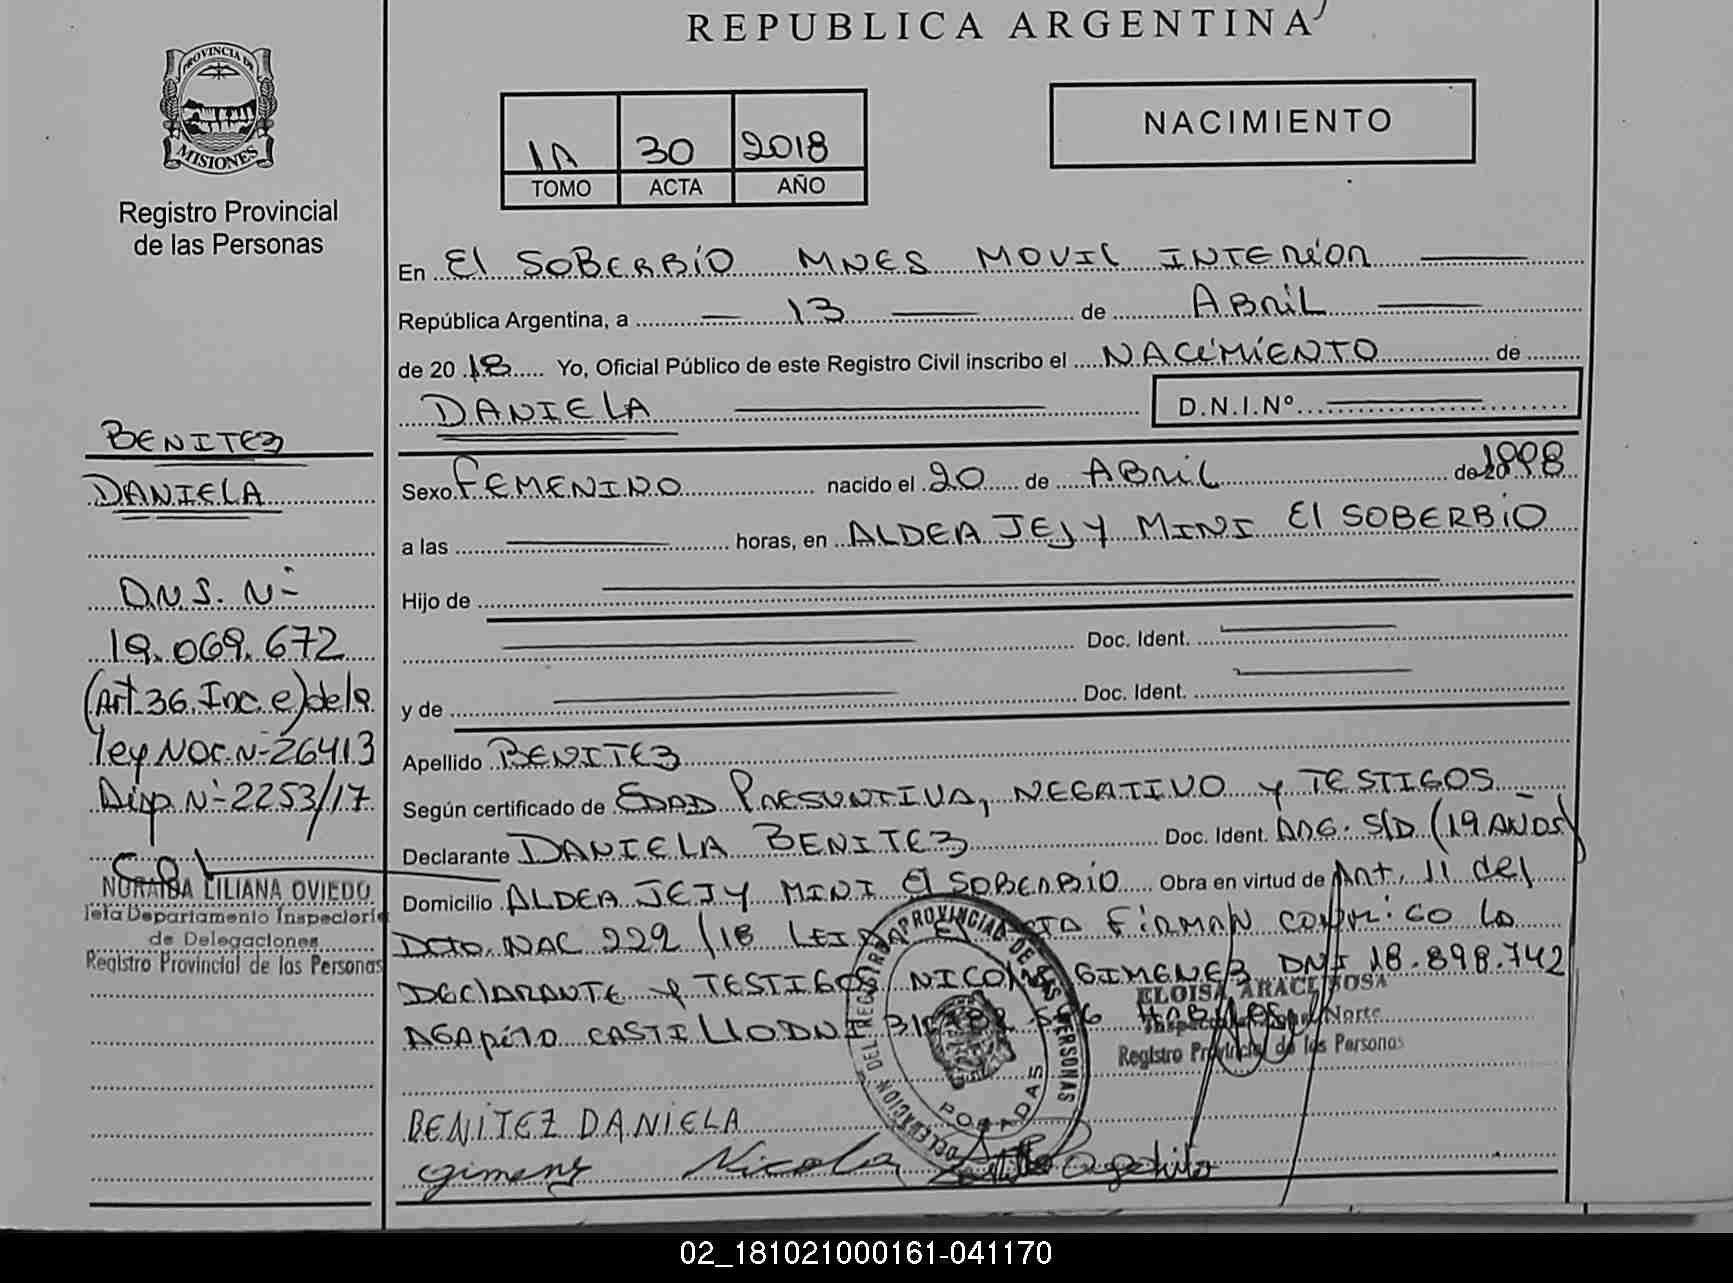 REPUBLICA ARGENTINA
PROVINCIA DE
MISIONES
Registro Provincial
de las Personas
30 2018
TOMO ACTA AÑO
NACIMIENTO
En El SOBERBIO MNES MOVIL INTERIOR
República Argentina, a 13 de ABRIL
de 2018 Yo, Oficial Público de este Registro Civil inscribo el NACIMIENTO de
DANIELA D.N.I.Nº
Sexo FEMENINO nacido el 20 de ABRIL de 1998
a las horas, en ALDEA JEJY MINI El SOBERBIO
Hijo de
Doc. Ident.
y de Doc. Ident.
Apellido BENITEZ
Según certificado de EDAD PRESUNTIVA, NEGATIVO y TESTIGOS
Declarante DANIELA BENITEZ Doc. Ident. ARG. S/D (19 AÑOS)
Domicilio ALDEA JEJY MINI El SOBERBIO Obra en virtud de Art. 11 del
Dcto. NAC 222/18 LEIDA El ACTA FIRMAN CONMIGO LA
DEClARANTE y TESTIGOS NICOLAS GIMENEZ DNI 18.898.742
AGAPITO CASTILLO DNI
BENITEZ DANIELA
Gimenez Nicola Agapito
BENITEZ
DANIELA
D.N.I. Nº
19.069.672
(Art. 36 Inc. e) de la
ley NAC. Nº 26413
Disp. Nº 2253/17
NORAIDA LILIANA OVIEDO
Jefa Departamento Inspectoría
de Delegaciones
Registro Provincial de las Personas
DELEGACION DEL REGISTRO PROVINCIAL DE LAS PERSONAS
POSADAS
ELOISA ARACELI SOSA
Norte
Registro Provincial de las Personas
02_181021000161-041170